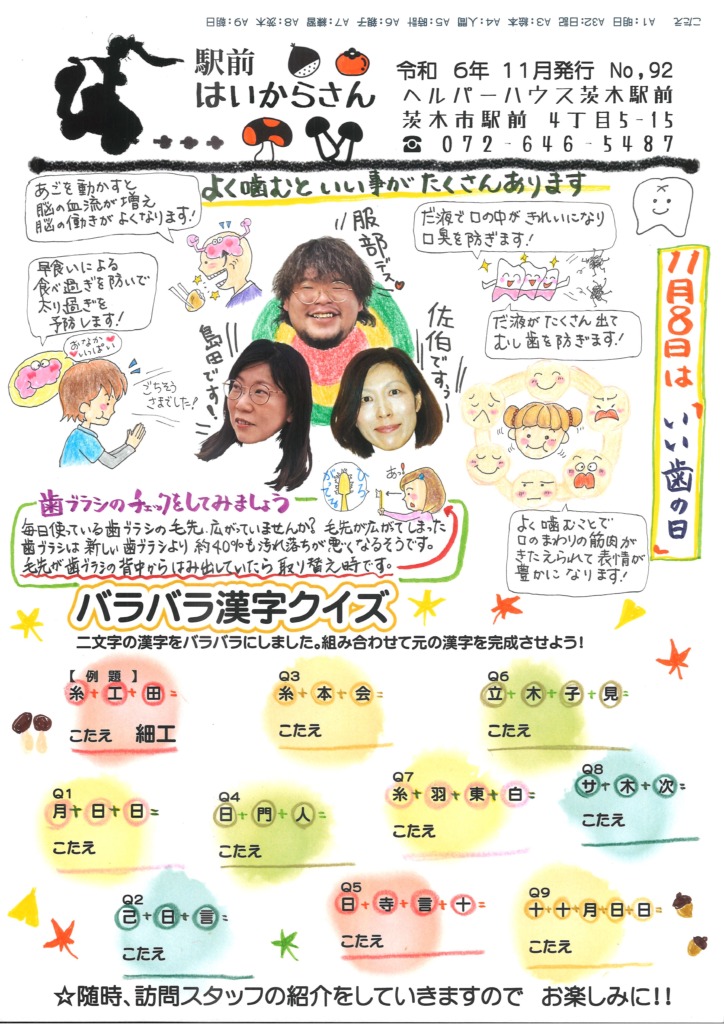 こたえ A1：明日 A32：日記 A3：絵本 A4：人間 A5：時計 A6：親子 A7：練習 A8：茨木 A9：朝日
駅前
はいからさん
令和 6年 11月発行 No,92
ヘルパーハウス茨木駅前
茨木市駅前 4丁目5-15
☎ 072-646-5487
よく噛むと いい事が たくさんあります
あごを動かすと
脳の血流が増え
脳の働きが よくなります!
早食いによる
食べ過ぎを防いで
太り過ぎを
予防します!
おなか
いっぱい
ごちそう
さまでした!
服部デス
島田です!
佐伯ですぅ
だ液で口の中が きれいになり
口臭を防ぎます!
だ液が たくさん 出て
むし歯を防ぎます!
11月8日は
いい歯の日
よく噛むことで
口のまわりの筋肉が
きたえられて表情が
豊かに なります!
歯ブラシのチェックをしてみましょう
ひろがってる
あっ!
毎日使っている歯ブラシの毛先、広がっていませんか? 毛先が広がてしまった
歯ブラシは 新しい歯ブラシより 約40%も汚れ落ちが悪くなるそうです。
毛先が歯ブラシの背中からはみ出していたら取り替え時です。
バラバラ漢字クイズ
二文字の漢字をバラバラにしました。組み合わせて元の漢字を完成させよう!
【 例 題 】
糸+工+田=
こたえ 細工
Q3
糸+本+会=
こたえ
Q6
立+木+子+見
こたえ
Q1
月+日+日=
こたえ
Q4
日+門+人=
こたえ
Q7
糸+羽+東+白=
こたえ
Q8
サ+木+次=
こたえ
Q2
己+日+言=
こたえ
Q5
日+寺+言+十=
こたえ
Q9
十+十+月+日+日=
こたえ
☆随時、訪問スタッフの紹介をしていきますので お楽しみに!!